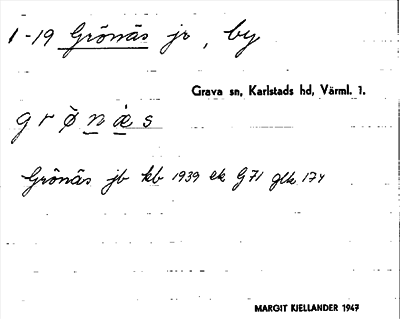 1-19 Grönäs jr, by
Grava sn, Karlstads hd, Värml. 1.
g r ø̀ n æ̀ s
Grönäs jb kb 1939 ek G 71 glk 174
MARGIT KJELLANDER 1947